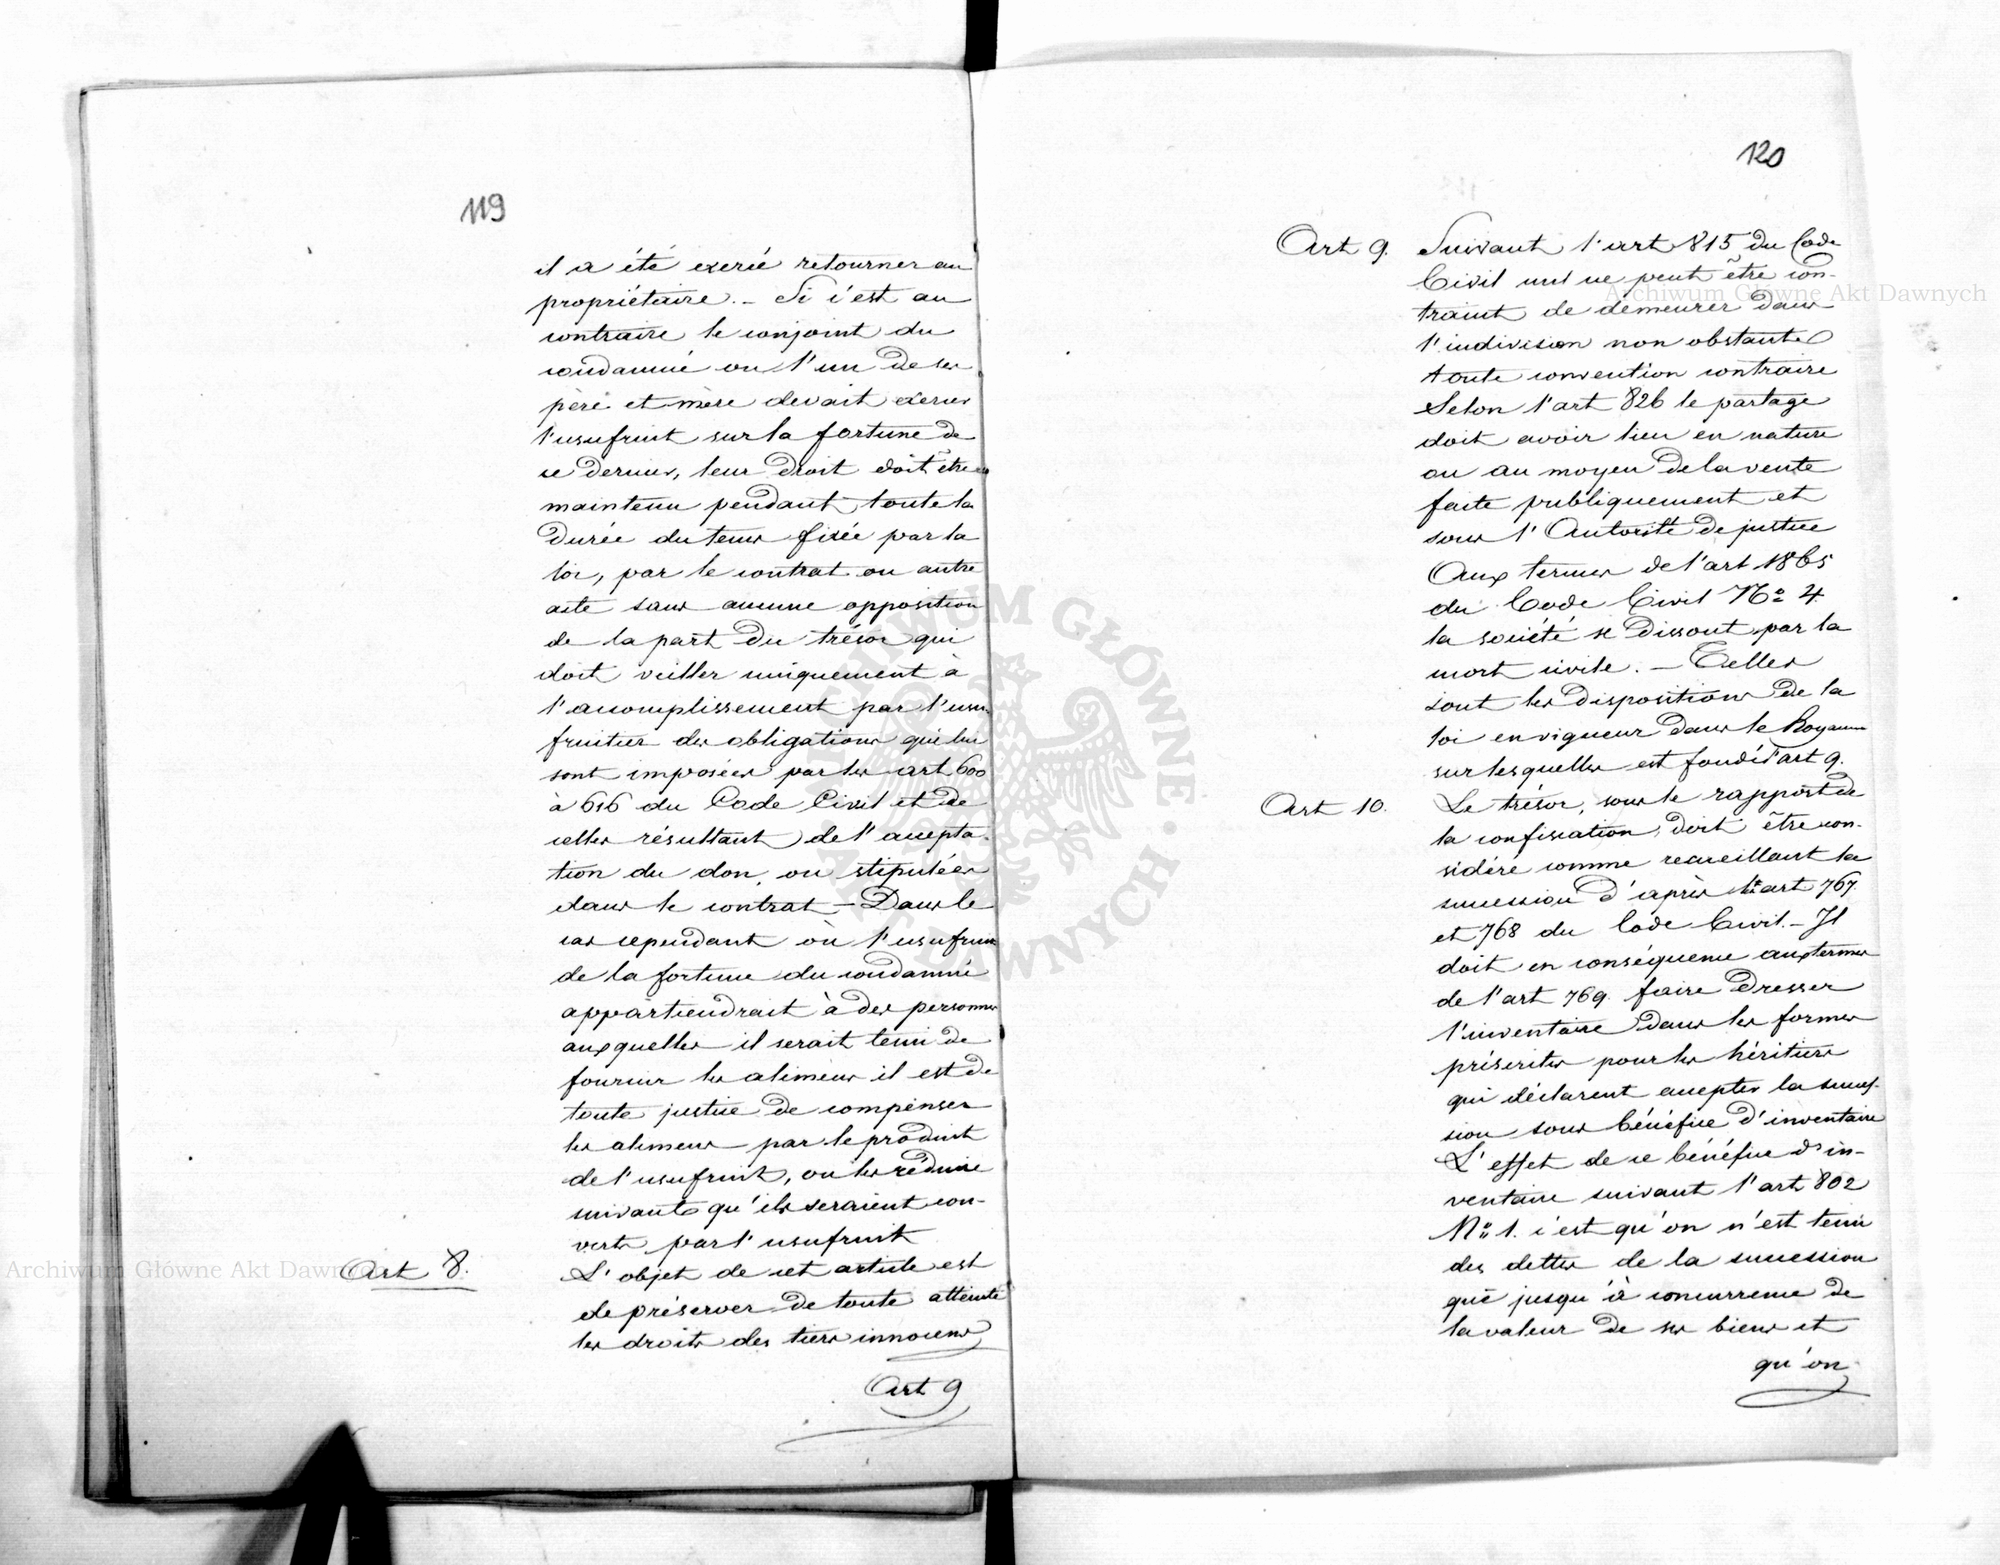 119
il a été exercé retourner au
propriétaire. – Si c'est au
contraire le conjoint du
condamné ou l'un de ses
père et mère devait exercer
l'usufruit sur la fortune de
ce dernier, leur droit doit être
maintenu pendant toute la
durée du tems fixée par la
loi, par le contrat ou autre
acte sans aucune opposition
de la part du trésor qui
doit veiller uniquement à
l'accomplissement par l'usu-
fruitier des obligations qui lui
sont imposées par les art 600
à 616 du Code Civil et de
celles résultant de l'accepta-
tion du don, ou stipulées
dans le contrat – Dans le
cas cependant où l'usufruit
de la fortune du condamné
appartiendrait à des personnes
auxquelles il serait tenu de
fournir les alimens il est de
toute justice de compenser
les alimens par le produit
de l'usufruit, ou les réduire
suivant qu'ils seraient cou-
verts par l'usufruit
Art 8. L'objet de cet article est
de préserver de toute atteinte
les droits des tiers innocens
Art 9
120
Art 9. Suivant l'art 815 du Code
Civil nul ne peut être con-
traint de demeurer dans
l'indivision non obstante
toute convention contraire
Selon l'art 826 le partage
doit avoir lieu en nature
ou au moyen de la vente
faite publiquement et
sous l'Autorité de justice
Aux termes de l'art 1865
du Code Civil No 4
la société se dissout par la
mort civile. – Telles
sont les dispositions de la
loi en vigueur dans le Royaume
sur lesquelles est fondé l'art 9.
Art 10. Le trésor, sous le rapport de
la confiscation, doit être con-
sidéré comme recueillant la
succession d'après l'art 767
et 768 du Code Civil. – Il
doit en conséquence aux termes
de l'art 769. faire dresser
l'inventaire dans les formes
préscrites pour les héritiers
qui déclarent accepter la succes-
sion sous bénéfice d'inventaire
L'effet de ce bénéfice d'in-
ventaire suivant l'art 802
No 1. c'est qu'on n'est tenu
des dettes de la succession
que jusqu'à concurrence de
la valeur de ses biens et
qu'on
Archiwum Główne Akt Dawnych
Archiwum Główne Akt Dawnych
ARCHIWUM GŁÓWNE AKT DAWNYCH